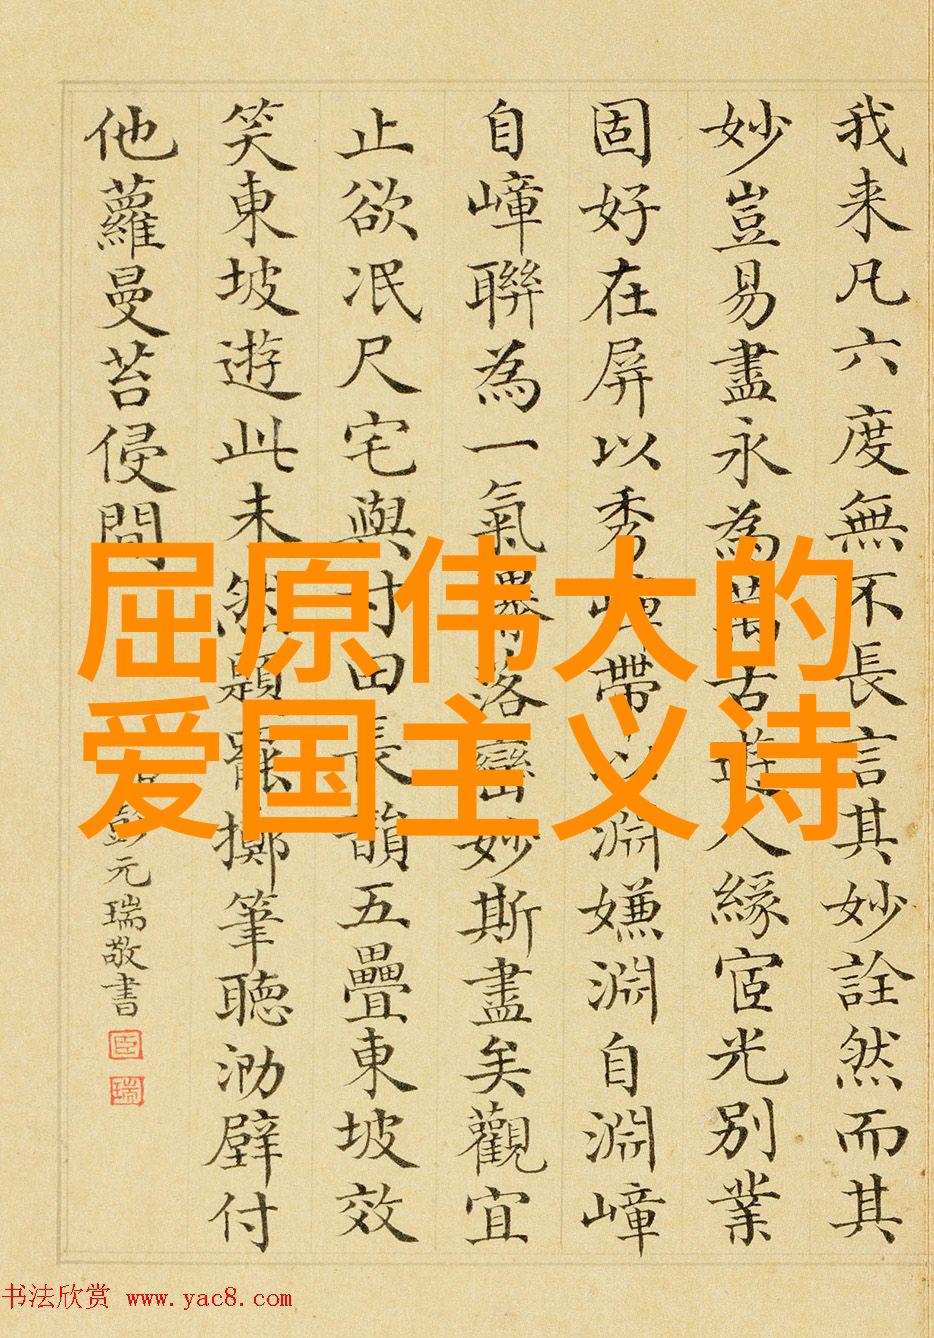 我来凡六度無不長言其妙詮然而其
妙豈易盡永為萬古遊人緣宧光別業
固好在屏以秀嶂帶以淵嫌淵自淵嶂
自嶂聯為一氣落巒妙斯盡矣觀宜
止欲泯尺宅與寸田長韻五疊東坡效
笑東坡遊此未然罷擲筆聽泐壁付
他蘿曼苔侵間
彭元瑞敬書
臣
瑞
屈原伟大的
爱国主义诗
书法欣赏 www.yac8.com